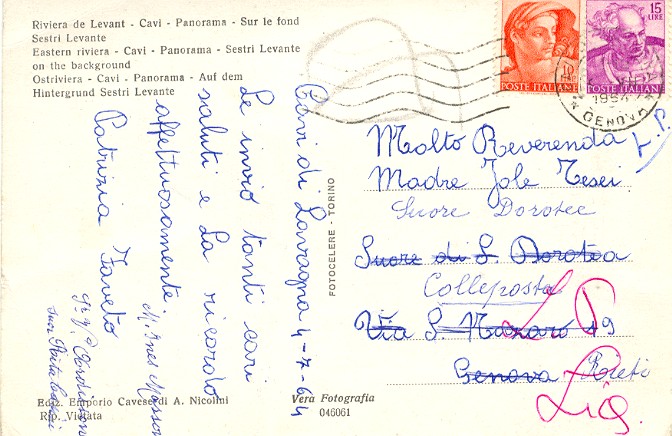 Riviera de Levant - Cavi - Panorama - Sur le fond
Sestri Levante
Eastern riviera - Cavi - Panorama - Sestri Levante
on the background
Ostriviera - Cavi - Panorama - Auf dem
Hintergrund Sestri Levante
10
POSTE ITALIANE
15
LIRE
POSTE ITALIANE
GENOVA
Cavi di Lavagna 4-7-64
Le invio tanti cari
saluti e La ricordo
affettuosamente
Patrizia Faveto
M. Ines
FOTOCELERE - TORINO
Molto Reverenda
Madre Jole Tesei
Suore Dorotee
Suore di S. Dorotea
Colleposta
Via S. Nazaro 19
Genova Rieti
Lig.
Ediz. Emporio Caveseddi A. Nicolini
Rip. Vietata
Vera Fotografia
046061